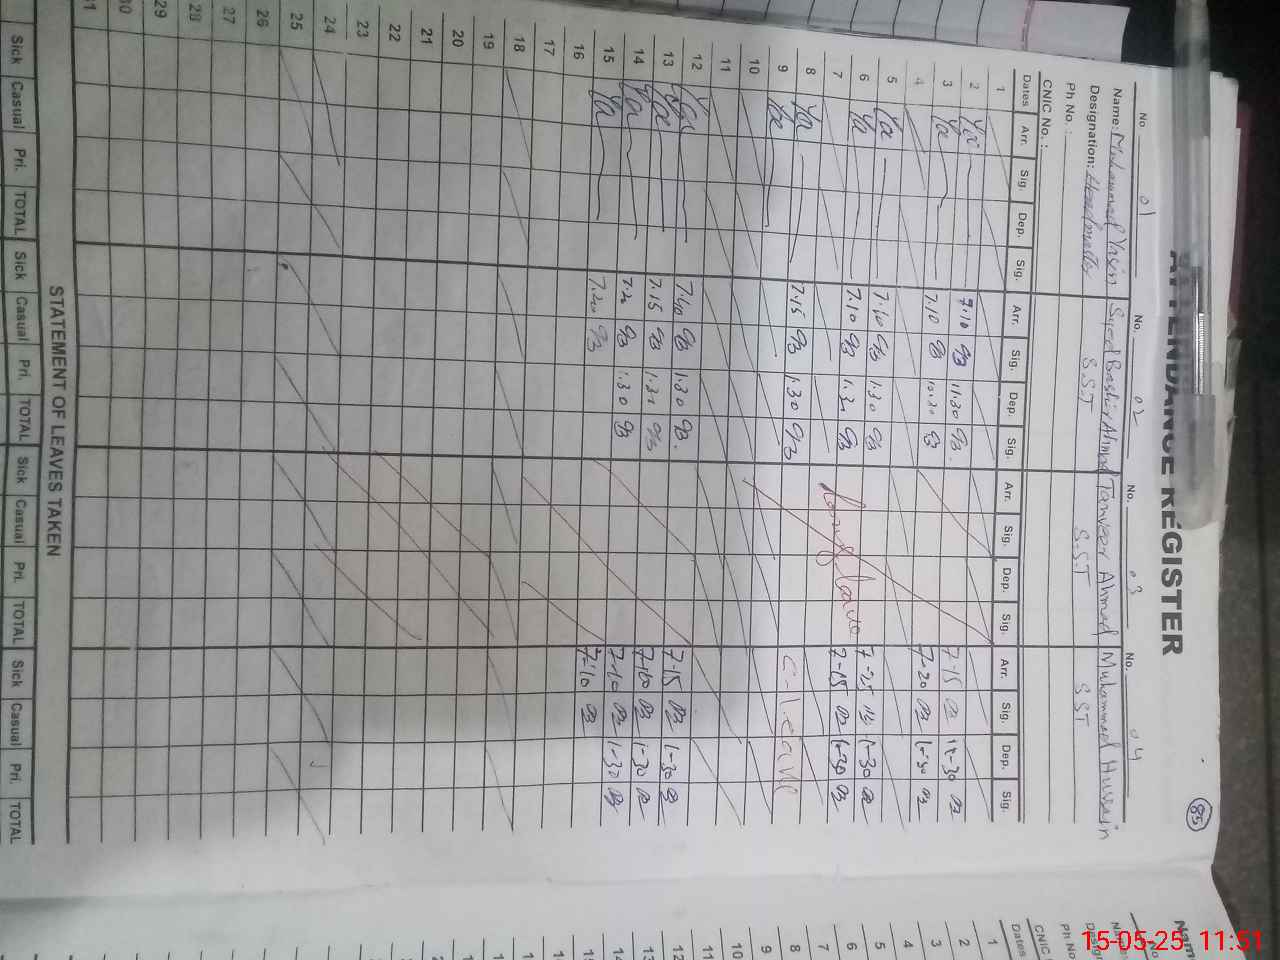 ATTENDANCE REGISTER
85
No 01 No. 02 No. 03 No. 04
Name: Muhammad Yasin Syed Bashir Ahmad Tanveer Ahmed Muhammad Hussain
Designation: Headmaster S.S.T S.S.T SST
Ph No.:
CNIC No.:
Dates Arr. Sig. Dep. Sig. Arr. Sig. Dep. Sig. Arr. Sig. Dep. Sig. Arr. Sig. Dep. Sig.
1
2 Ya 7.10 11.30 7-15 11-30
3 Ya 7.10 10.30 7-20
4
5 Ya 7.40 1.30 7-25 1-30
6 Ya 7.10 1.30 Long leave 7-15 1-30
7
8 Ya 7.15 1.30 C-leave
9 Ya
10
11
12 Ya 7.40 1.30 7-15 1-30
13 Ya 7.15 1.30 7-10 1-30
14 Ya 7.20 1.30 7-10 1-30
15 Ya 7.20 7-10
16
17
18
19
20
21
22
23
24
25
26
27
28
29
30
31
STATEMENT OF LEAVES TAKEN
Sick Casual Pri. TOTAL Sick Casual Pri. TOTAL Sick Casual Pri. TOTAL Sick Casual Pri. TOTAL
Ph No
CNIC
Dates
1
2
3
4
5
6
7
8
9
10
11
12
13
14
15-05-25 11:51